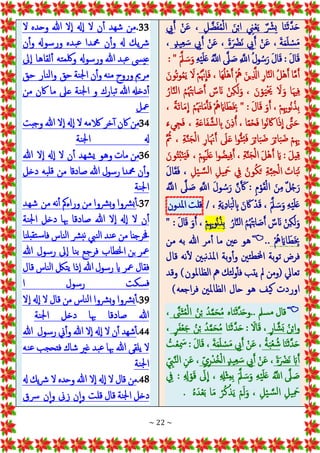 33.من شهد أن لا إله إلا الله وحده لا
شريك له وأن محمدا عبده ورسوله وأن
عيسى عبد الله ورسوله وكلمته ألقاها إلى
مريم وروح منه وأن الجنة حق والنار حق
أدخله الله تبارك و الجنة على ما كان من
عمل
34.من كان آخر كلامه لا إله إلا الله وجبت
له الجنة
36.من مات وهو يشهد أن لا إله إلا الله
وأن محمدا رسول الله صادقا من قلبه دخل
الجنة
37.أبشروا وبشروا من وراءكم أنه من شهد
أن لا إله إلا الله صادقا بها دخل الجنة
فخرجنا من عند النبي نبشر الناس فاستقبلنا
عمر بن الخطاب فرجع بنا إلى رسول الله
فقال عمر يا رسول الله إذا يتكل الناس قال
فسكت رسول ا
39.أبشروا وبشروا الناس من قال لا إله إلا
الله صادقا بها دخل الجنة
44.أشهد أن لا إله إلا الله وأني رسول الله
لا يلقى الله بها عبد غير شاك فتحجب عنه
الجنة
48.من قال لا إله إلا الله وحده لا شريك له
دخل الجنة قال قلت وإن زنى وإن سرق
حَدَّثَنَا بِشْرٌ يَعْنِي ابْنَ الْمُفَضَّلِ ، عَنْ أَبِي
مَسْلَمَةَ ، عَنْ أَبِي نَضْرَةَ ، عَنْ أَبِي سَعِيدٍ ،
قَالَ: قَالَ رَسُولُ اللَّهِ صَلَّى اللَّهُ عَلَيْهِ وَسَلَّمَ : "
أَمَّا أَهْلُ النَّارِ الَّذِينَ هُمْ أَهْلُهَا ، فَإِنَّهُمْ لَا يَمُوتُونَ
فِيهَا وَلَا يَحْيَوْنَ ، وَلَكِنْ نَاسٌ أَصَابَتْهُمُ النَّارُ
بِذُنُوبِهِمْ أَوَ قَالَ : " بِخَطَايَاهُمْ فَأَمَاتَهُمْ إِمَاتَةً ،
حَتَّى إِذَا كَانُوا فَحْمًا ، أُذِنَ بِالشَّفَاعَةِ ، فَجِيءَ
بِهِمْ ضَبَائِرَ ضَبَائِرَ فَبُثُّوا عَلَى أَنْهَارِ الْجَنَّةِ ، ثُمَّ
قِيلَ : يَا أَهْلَ الْجَنَّةِ ، أَفِيضُوا عَلَيْهِمْ ، فَيَنْبُتُونَ
نَبَاتَ الْحِبَّةِ تَكُونُ فِي حَمِيلِ السَّيْلِ ، فَقَالَ
رَجُلٌ مِنَ الْقَوْمِ : كَأَنَّ رَسُولَ اللَّهِ صَلَّى اللَّهُ
عَلَيْهِ وَسَلَّمَ ، قَدْ كَانَ بِالْبَادِيَةِ ، / قلت المدون
وَلَكِنْ نَاسٌ أَصَابَتْهُمُ النَّارُ بِذُنُوبِهِمْ أَوَ قَالَ : "
بِخَطَايَاهُمْ ..☜ هو عين ما أمر الله به من
فرض توبة المخطئين وأوبة المذنبين لأنه قال
تعالي (ومن لم يتب فأولئك هم الظالمون) وقد
اوردت كيف هو حال الظالمين فراجعه)
☜ قال مسلم ..وحَدَّثَنَاه مُحَمَّدُ بْنُ الْمُثَنَّى ،
وَابْنُ بَشَّارٍ ، قَالَا : حَدَّثَنَا مُحَمَّدُ بْنُ جَعْفَرٍ ،
حَدَّثَنَا شُعْبَةُ ، عَنْ أَبِي مَسْلَمَةَ ، قَالَ : سَمِعْتُ
أَبَا نَضْرَةَ ، عَنْ أَبِي سَعِيدٍ الْخُدْرِيِّ ، عَنِ النَّبِيِّ
صَلَّى اللَّهُ عَلَيْهِ وَسَلَّمَ بِمِثْلِهِ ، إِلَى قَوْلِهِ : فِي
حَمِيلِ السَّيْلِ ، وَلَمْ يَذْكُرْ مَا بَعْدَهُ .
~ 22 ~